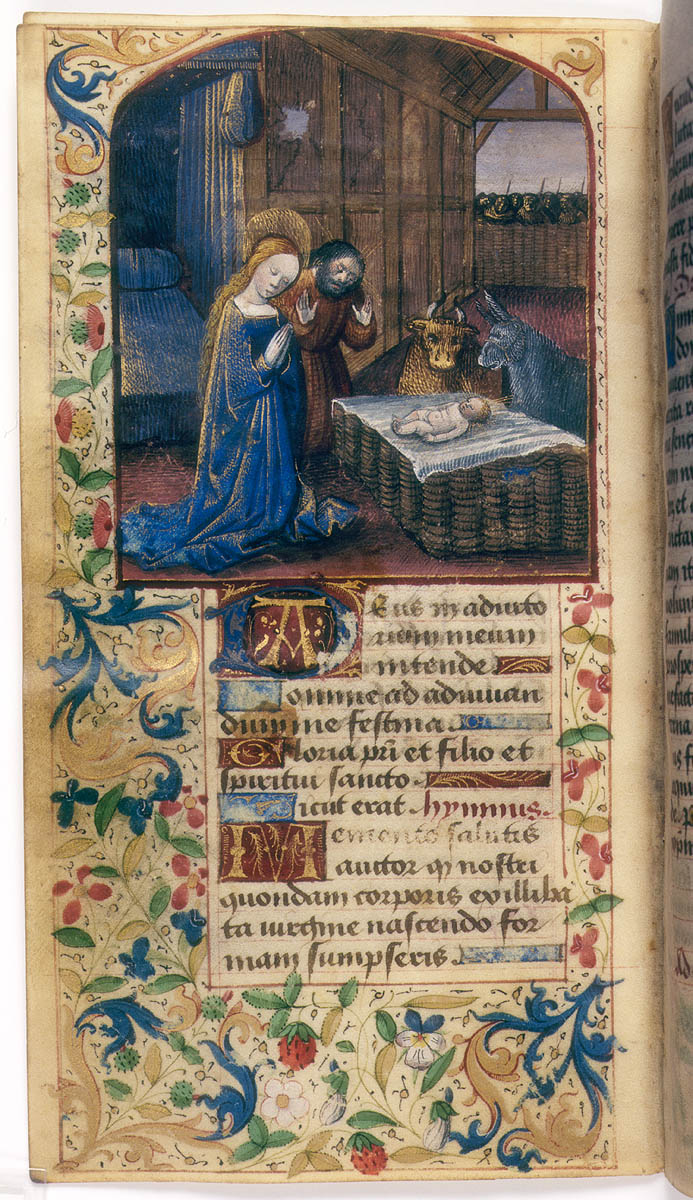 Deus in adiuto
rium meum
intende
Domine ad adiuuan
dum me festina
Gloria pri et filio et
spiritui sancto
Sicut erat hymnus.
Memento salutis
auctor q nostri
quondam corporis ex illiba
ta uirgine nascendo for
mam sumpseris